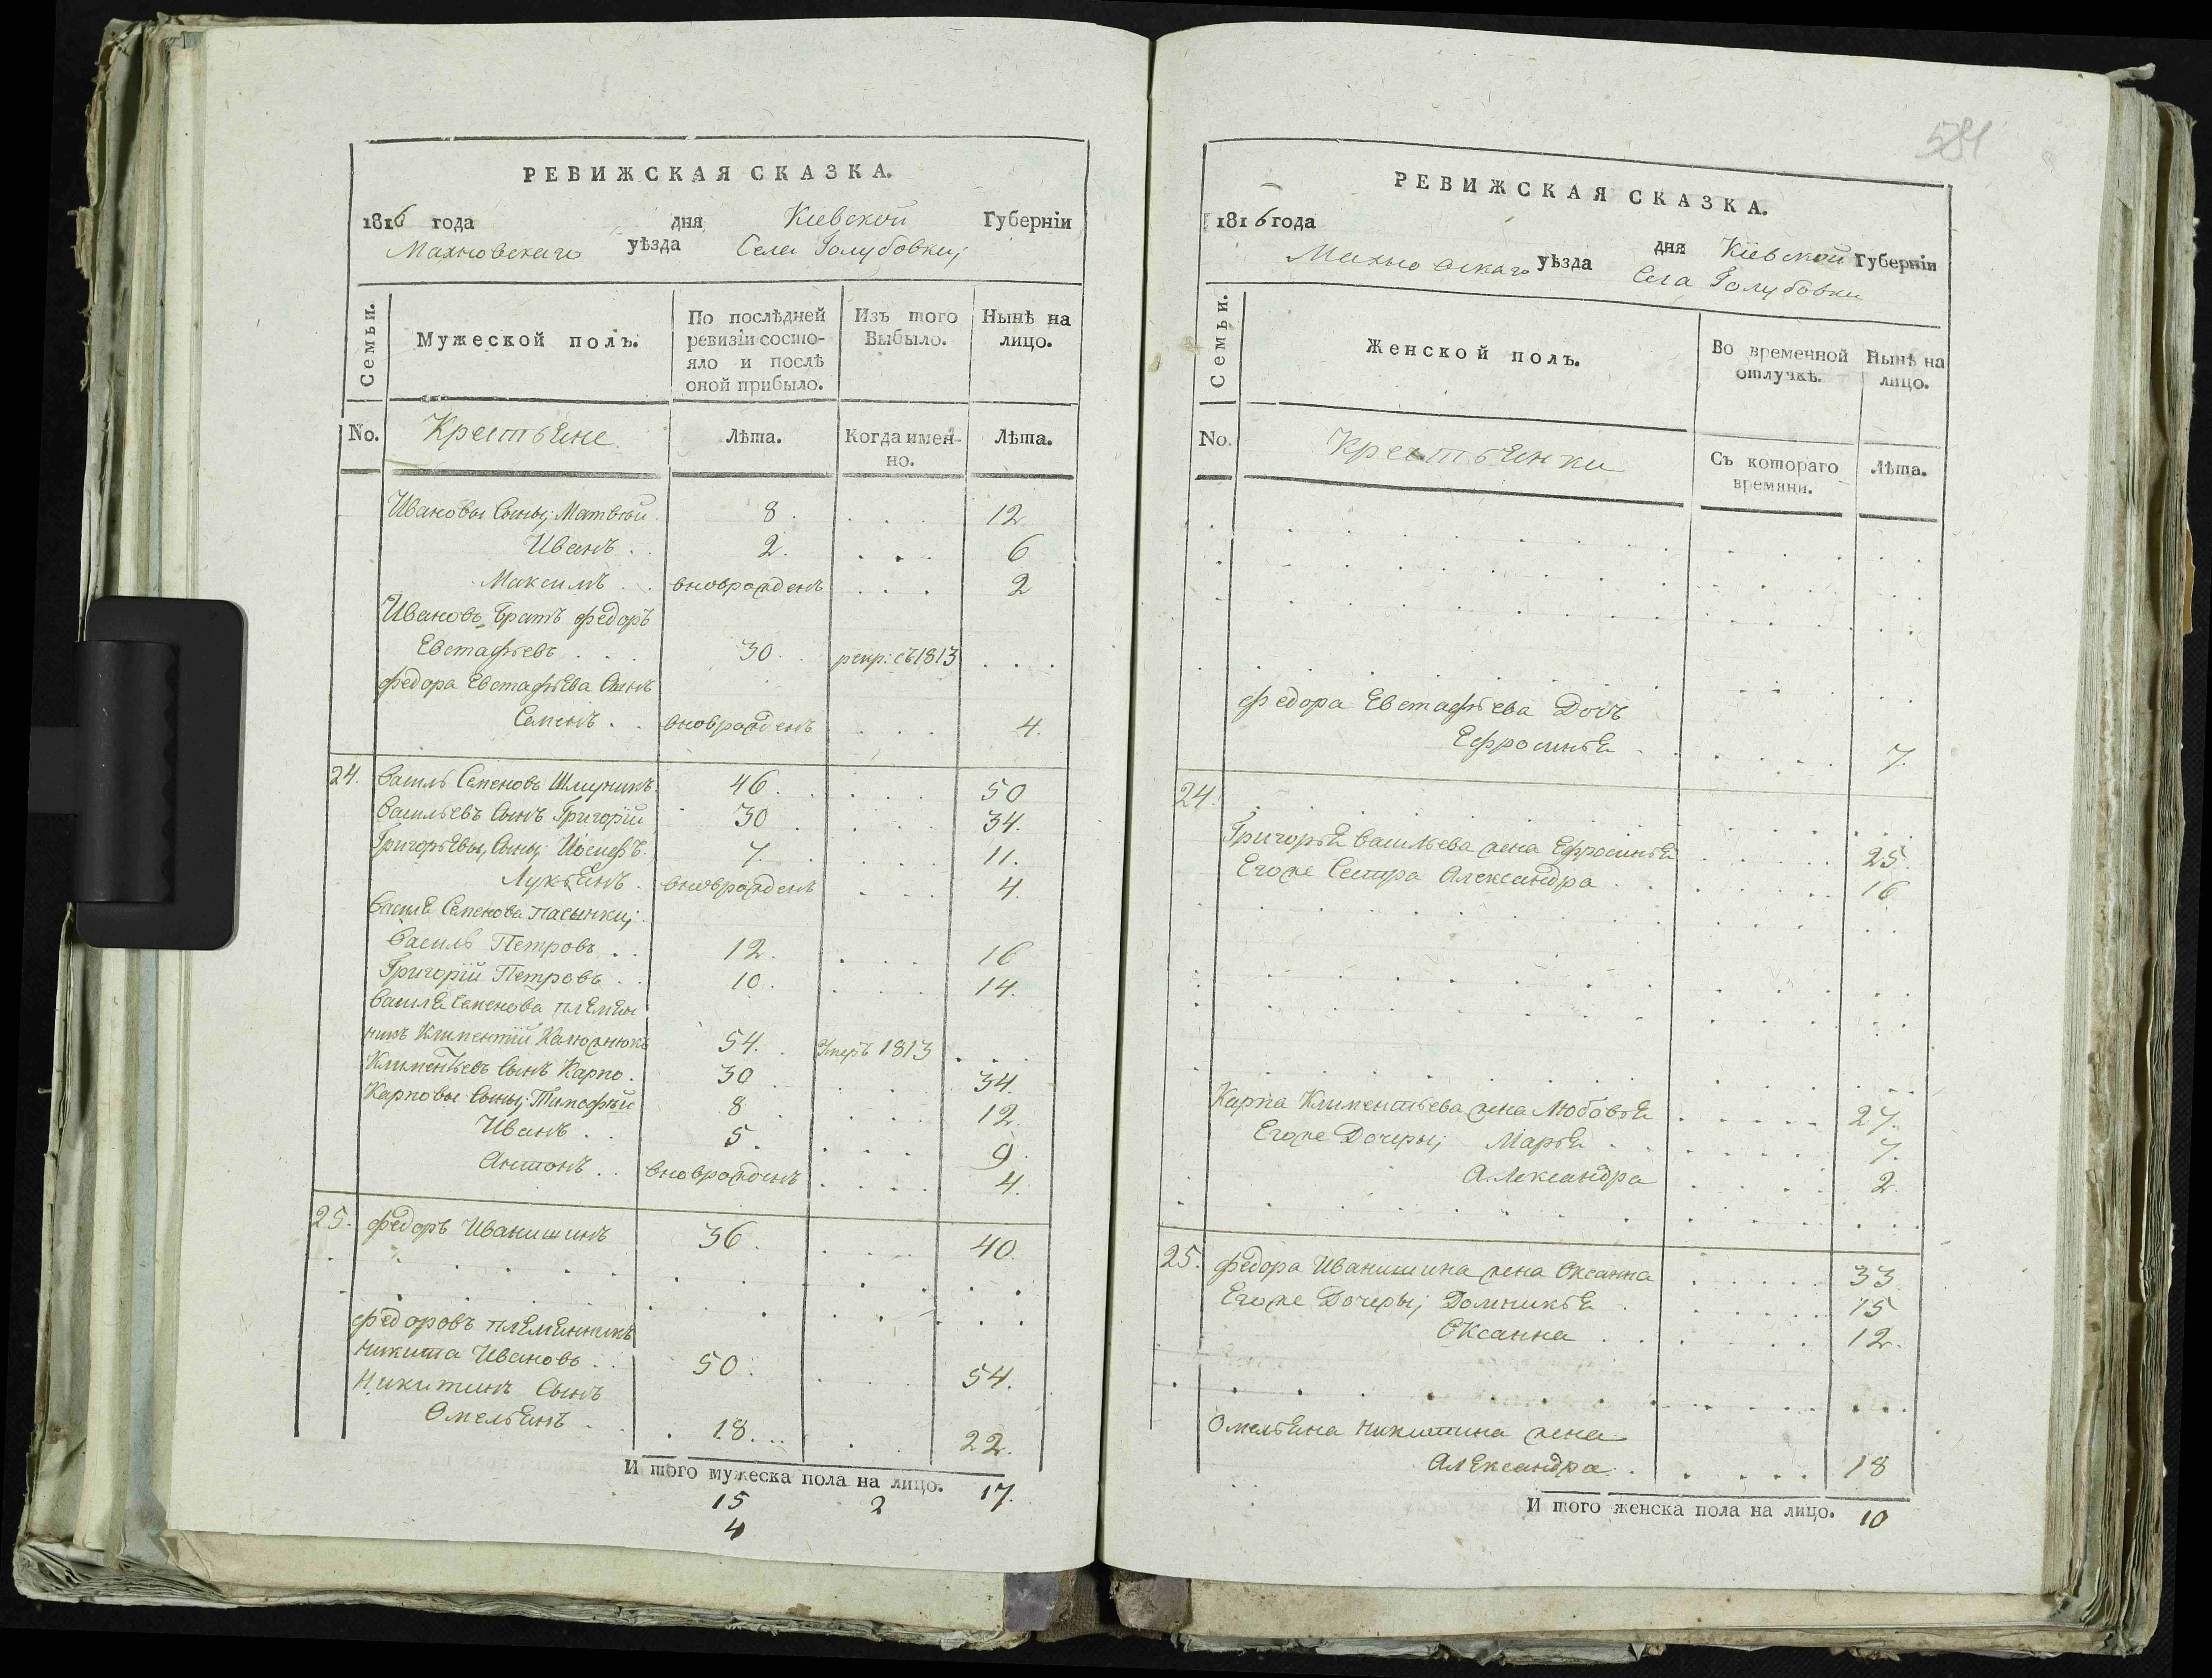 РЕВИЖСКАЯ СКАЗКА.
1816 года дня Кіевской Губерніи
Махновскаго уѣзда Села Голубовки;
Семьи.
Мужеской полъ.
По послѣдней ревизіи состояло и послѣ оной прибыло.
Изъ того Выбыло.
Нынѣ на лицо.
No.
Крестьяне
Лѣта.
Когда именно.
Лѣта.
Ивановы Сыны; Матвѣй 8. 12
Иванъ 2. 6
Максимъ вноврожденъ 2
Ивановъ братъ Федоръ
Евстафьевъ 30. рекр: съ 1813
Федора Евстафьева Сынъ
Семенъ вноврожденъ 4.
24. Василь Семеновъ 46. 50
Васильевъ Сынъ Григорій 30 34.
Григорьевы, Сыны; Иосифъ 7. 11.
Лукьянъ вноврожденъ 4.
Василя Семенова пасынки;
Василь Петровъ 12. 16
Григорій Петровъ 10. 14.
Василя Семенова племян
никъ Климентій 54. Умеръ 1813
Климентьевъ Сынъ Карпо 30 34.
Карповы Сыны; Тимофѣй 8 12.
Иванъ 5. 9.
Антонъ вноврожденъ 4.
25. Федоръ Иванишинъ 36. 40.
Федоровъ племянникъ
Никита Ивановъ 50. 54.
Никитинъ Сынъ
Омельянъ 18. 22.
И того мужеска пола на лицо. 17.
15 2
4
581
РЕВИЖСКАЯ СКАЗКА.
1816 года
дня Кіевской Губерніи
Махновскаго уѣзда Села Голубовки
Семьи.
Женской полъ.
Во временной отлучкѣ.
Нынѣ на лицо.
No.
Крестьянки
Съ котораго времяни.
Лѣта.
Федора Евстафьева Дочь
Ефросинья 7.
24.
Григорья Васильева жена Ефросинья 25.
Егоже Сестра Александра 16
Карпа Климентьева жена Любовья 27.
Егоже Дочеры; Марья 7.
Александра 2.
25. Федора Иванишина жена Оксанна 33
Егоже Дочеры; Домникья 15
Оксанна 12.
Омельяна Никитина жена
Александра 18
И того женска пола на лицо. 10